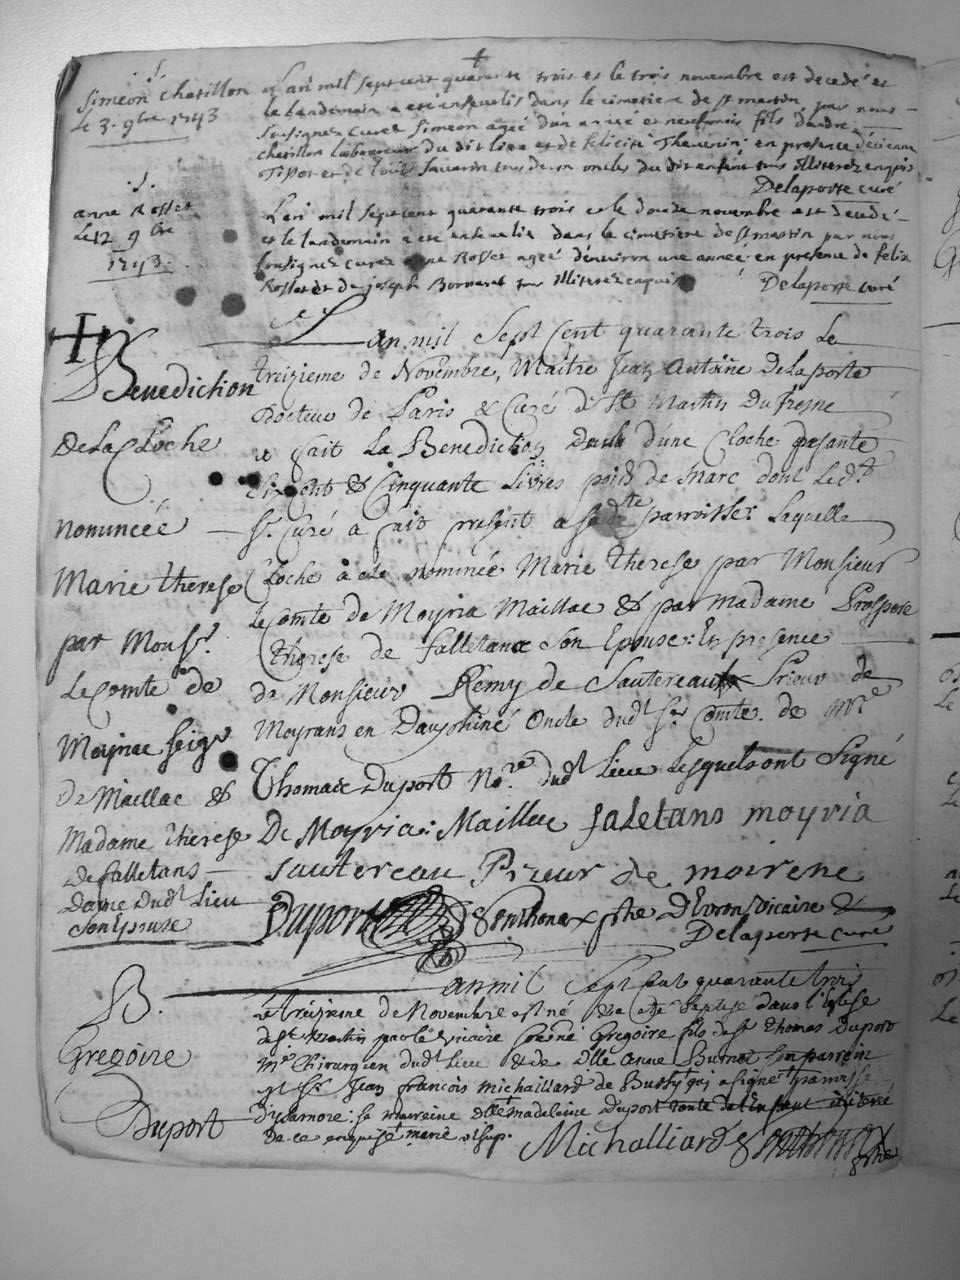 .S.
Simeon chatillon
Le 3. 9bre 1743
L'an mil sept cent quarante trois et le trois novembre est decedé et
le landemain a eté enseveli dans le cimetiere de st martin, par nous
soussigné curé Simeon agé d'un année et neuf mois fils d'andre
chatillon laboureur du dit lieu et de felicité Thevenin: en presence d'etienne
Tissot et de louis Savarin tous deux oncles du dit enfant tous illiterez enquis
Delaporte curé
.S.
anne Rosset
Le 12 9bre
1743.
L'an mil sept cent quarante trois et le douze novembre est decedé
et le landemain a eté ensevelie dans le cimetiere de st martin par nous
soussigné curé anne Rosset agée d'environ une année: en presence de felix
Rosset et de joseph Bornarel tous illiterez enquis Delaporte curé
Benediction
De La Cloche
nommée
Marie therese
par Monsr.
Le Comte de
Moyriac seigr
de Maillac &
Madame therese
de falletans
Dame dudt Lieu
son Epouse
L'an mil Sept Cent quarante trois Le
treizieme de Novembre, Maître Jean Antoine Delaporte
Docteur de Paris & Curé de St Martin Du fresne
a fait La Benediction d'une Cloche pesante
Cent & Cinquante Livres poids de Marc dont Ledt
Sr. Curé a fait present a sadte parroisse: Laquelle
Cloche a eté nominée Marie therese par Monsieur
Le Comte de Moyria Maillac & par Madame Prospere
therese de falletans son Epouse: En presence
de Monsieur Remy de Sautereau Prieur de
Moyrans en Dauphiné oncle dudt Sr. Comte. de Mre
Thomas Duport Nore dudt Lieu Lesquels ont Signé
De Moyria: Maillac faletans moyria
Sautereau Prieur de moirene
Duport Sonthonax ptre D'Evron vicaire &
Delaporte curé
B.
Gregoire
Duport
L'an mil Sept Cent quarante trois
Le treizieme de Novembre est né & a eté Baptisé dans l'Eglise
de St Martin par le vicaire soussigné Gregoire fils de Sr thomas Duport
Me Chirurgien dudt Lieu & de Dlle Anne Burnet son parrein
Sr Jean francois Michaillard de Bussy qui a signé
sa marreine Dlle madelaine Duport tante de l'Enfant illiterée
de ce enquise
Michalliard Sonthonax
ptre